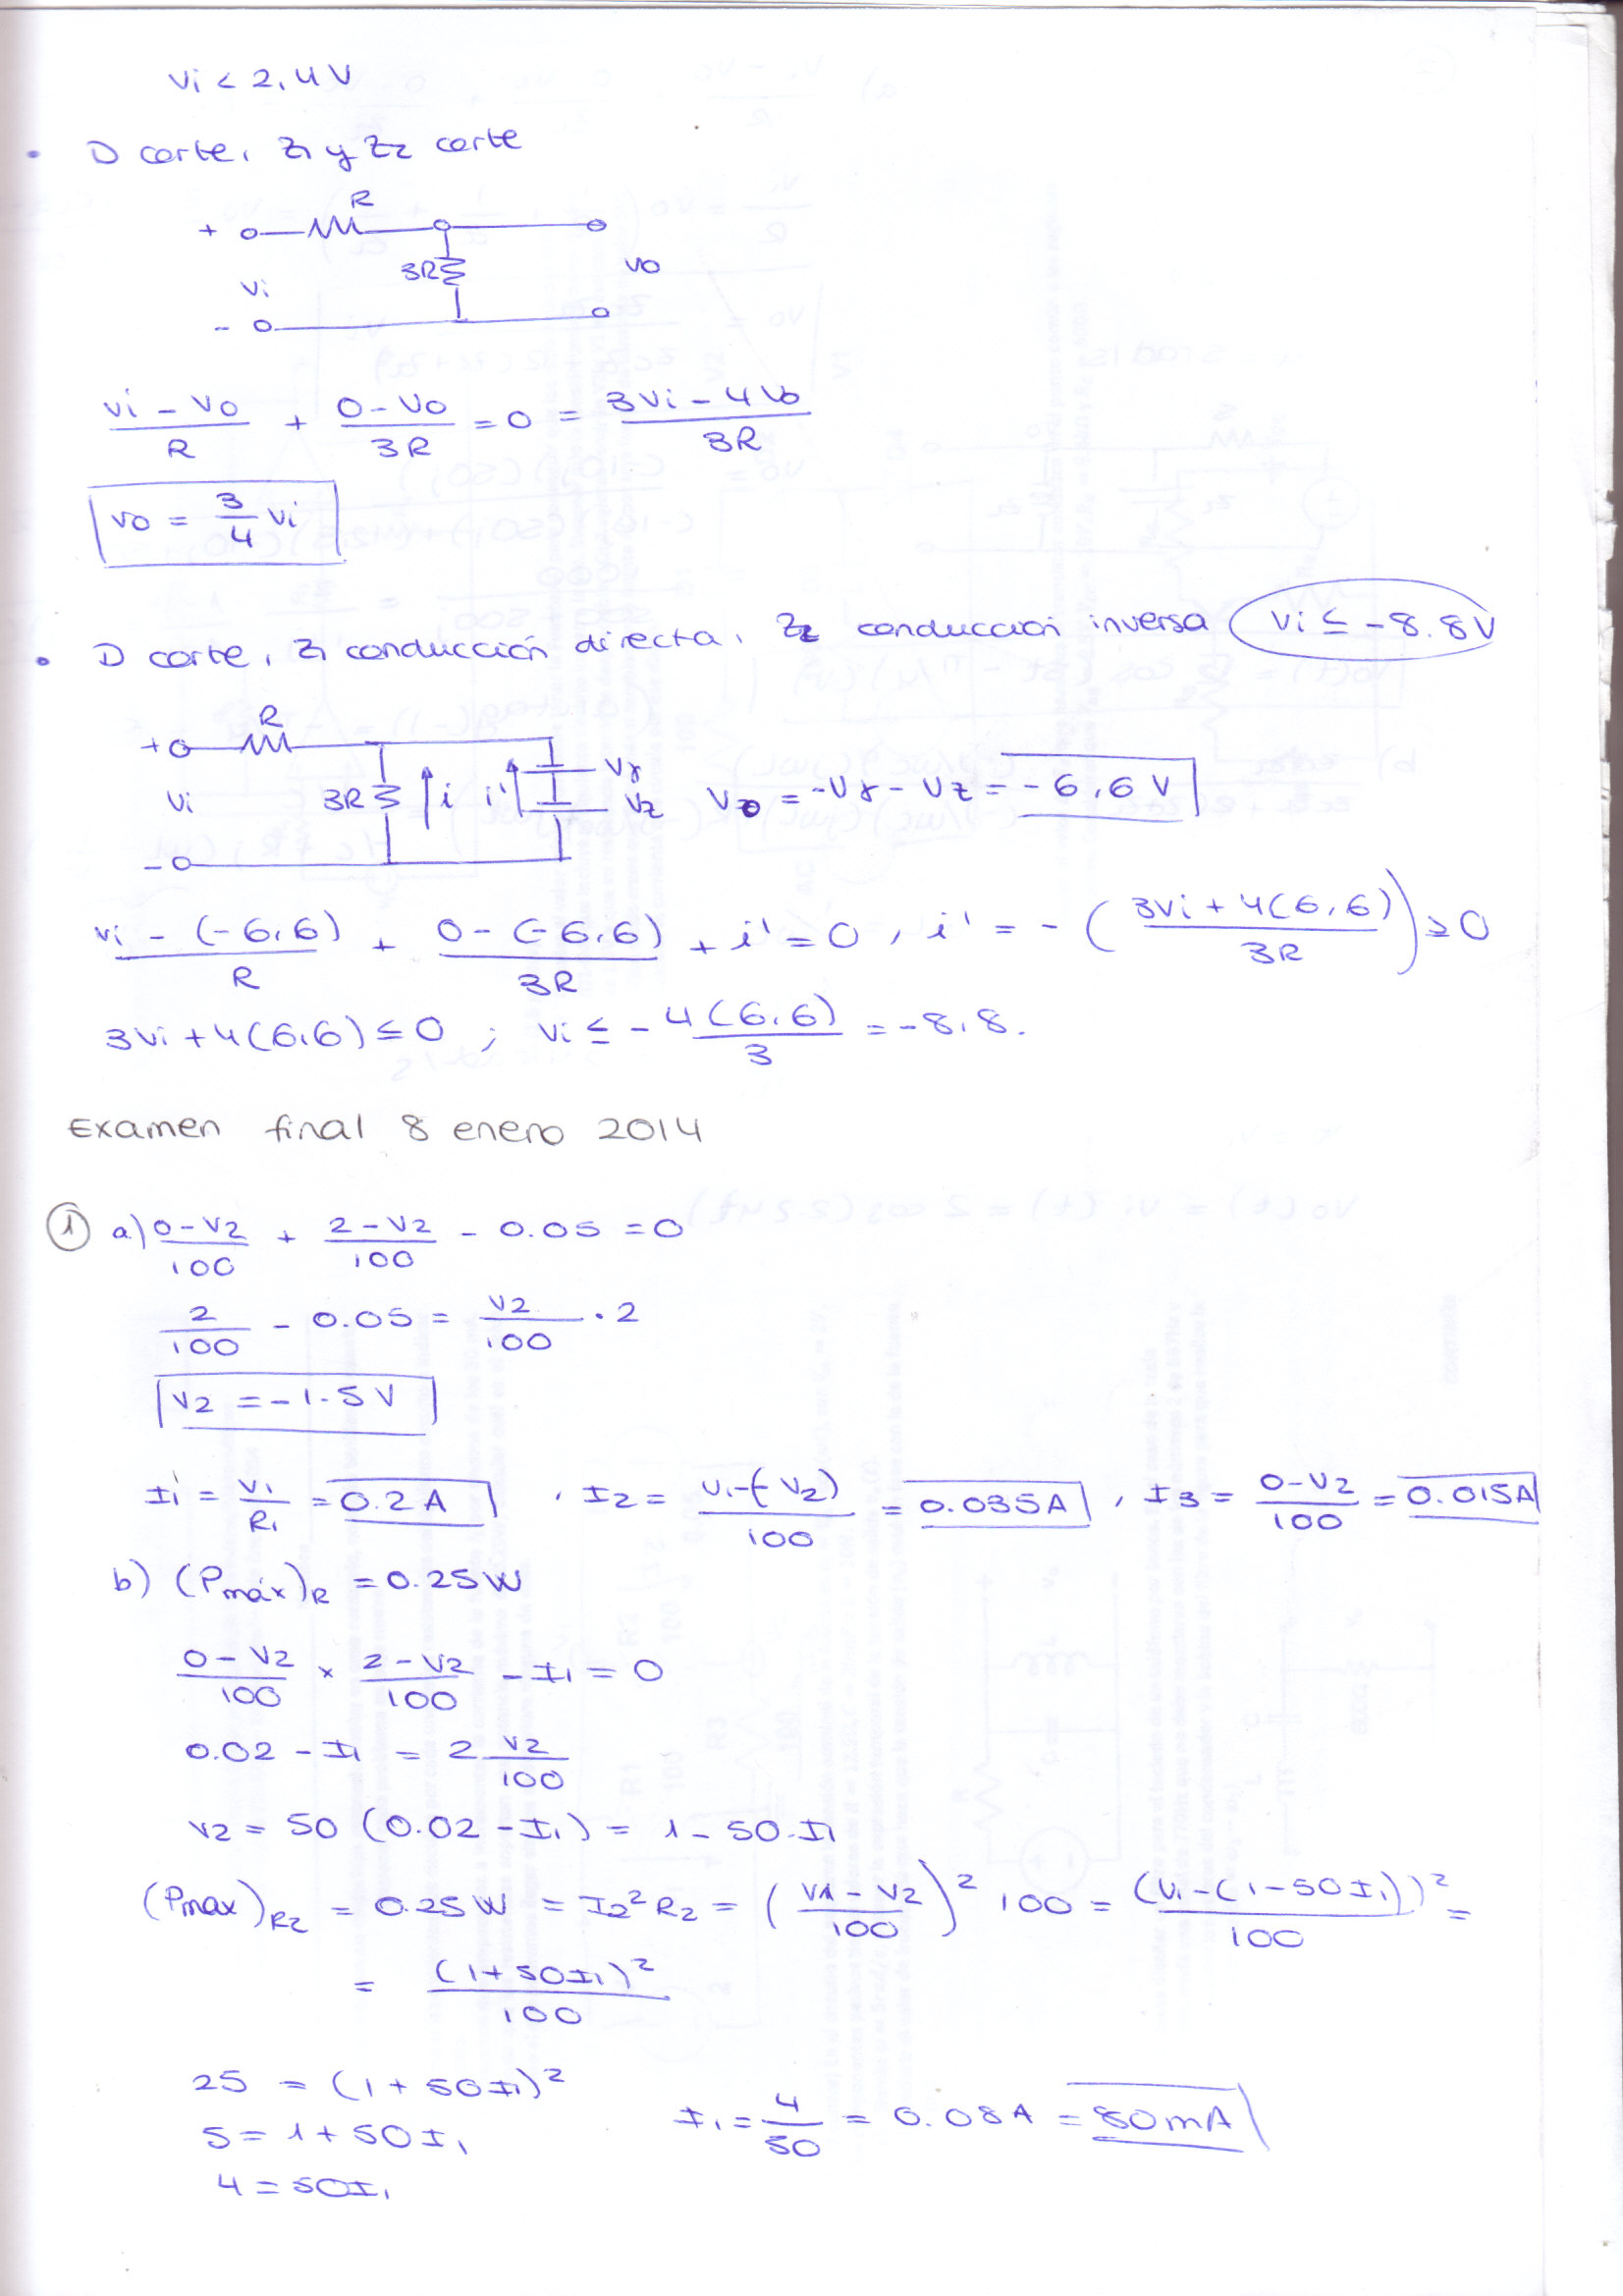 Vi < 2,4V
• D corte, Z1 y Z2 corte
R
+
3R
Vo
Vi
-
(Vi - Vo)/R + (0 - Vo)/3R = 0 = (3Vi - 4Vo)/3R
Vo = 3/4 Vi
• D corte, Z1 conducción directa, Z2 conducción inversa Vi ≤ -8.8V
R
+
Vi 3R i i' Vγ
Vz Vo = -Vγ - Vz = -6,6 V
-
(Vi - (-6,6))/R + (0 - (-6,6))/3R + i' = 0, i' = - ((3Vi + 4(6,6))/3R) ≥ 0
3Vi + 4(6,6) ≤ 0 ; Vi ≤ - 4(6,6)/3 = -8,8.
Examen final 8 enero 2014
① a) (0 - V2)/100 + (2 - V2)/100 - 0.05 = 0
2/100 - 0.05 = V2/100 · 2
V2 = -1.5V
I1 = V1/R1 = 0.2 A , I2 = (V1-(V2))/100 = 0.035A , I3 = (0-V2)/100 = 0.015A
b) (Pmáx)R = 0.25W
(0 - V2)/100 × (2 - V2)/100 - I1 = 0
0.02 - I1 = 2 V2/100
V2 = 50 (0.02 - I1) = 1 - 50·I1
(Pmax)R2 = 0.25W = I2² R2 = ((V1 - V2)/100)² 100 = (V1-(1-50I1))²/100 =
= (1+50I1)²/100
25 = (1+50I1)²
5 = 1+50I1
I1 = 4/50 = 0.08A = 80mA
4 = 50I1